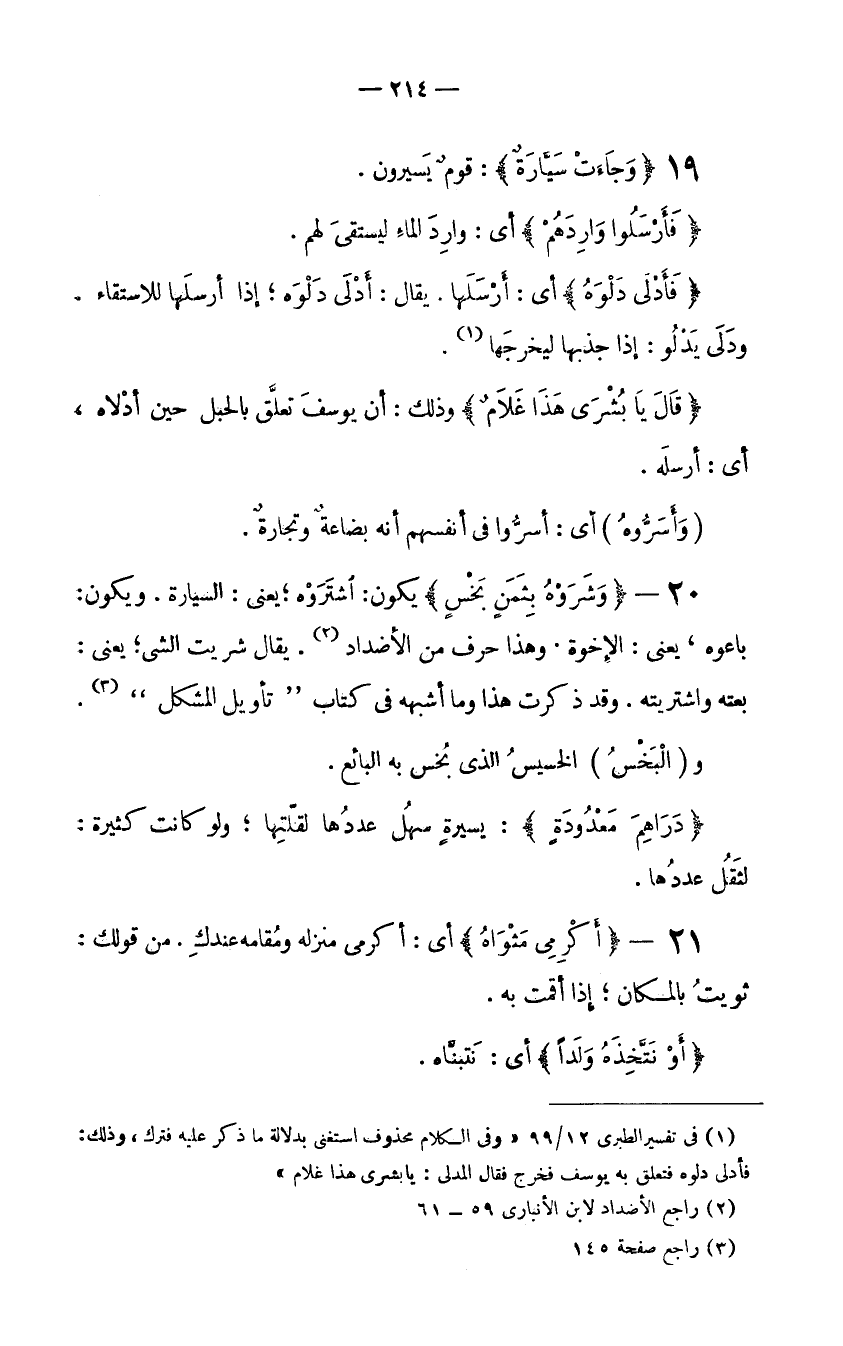 — ٢١٤ —
١٩ ﴿ وَجَاءَتْ سَيَّارَةٌ ﴾ : قومٌ يَسيرون .
﴿ فَأَرْسَلُوا وَارِدَهُمْ ﴾ أى : وارِدَ الماء ليستقىَ لهم .
﴿ فَأَدْلَى دَلْوَهُ ﴾ أى : أرْسَلَها . يقال : أَدْلَى دَلْوَه ؛ إذا أرسلَها للاستقاء .
ودَلَى يَدْلُو : إذا جذبها ليخرجَها (١) .
﴿ قَالَ يَا بُشْرَى هَذَا غَلَامٌ ﴾ وذلك : أن يوسفَ تعلَّق بالحبل حين أدْلاه ،
أى : أرسلَه .
( وَأَسَرُّوهُ ) أى : أسرُّوا فى أنفسهم أنه بضاعةٌ وتجارةٌ .
٢٠ — ﴿ وَشَرَوْهُ بِثَمَنٍ بَخْسٍ ﴾ يكون: ٱشتَرَوْه ؛يعنى : السيارة . ويكون:
باعوه ، يعنى : الإخوة . وهذا حرف من الأضداد (٢) . يقال شريت الشىء؛ يعنى :
بعته واشتريته . وقد ذكرت هذا وما أشبهه فى كتاب ” تأويل المشكل “ (٣) .
و ( الْبَخْسُ ) الخسيسُ الذى بُخس به البائع .
﴿ دَرَاهِمَ مَعْدُودَةٍ ﴾ : يسيرةٍ سهُل عددُها لقلّتِها ؛ ولو كانت كثيرة :
لثَقُل عددُها .
٢١ — ﴿ أَكْرِمِى مَثْوَاهُ ﴾ أى : أكرمى منزله ومُقامه عندكِ . من قولك :
ثويتُ بالمكان ؛ إذا أقمت به .
﴿ أَوْ نَتَّخِذَهُ وَلَداً ﴾ أى : نَتبنَّاه .
(١) فى تفسير الطبرى ٩٩/١٢ « وفى الكلام محذوف استغنى بدلالة ما ذكر عليه فترك ، وذلك:
فأدلى دلوه فتعلق به يوسف فخرج فقال المدلى : يابشرى هذا غلام »
(٢) راجع الأضداد لابن الأنبارى ٥٩ — ٦١
(٣) راجع صفحة ١٤٥